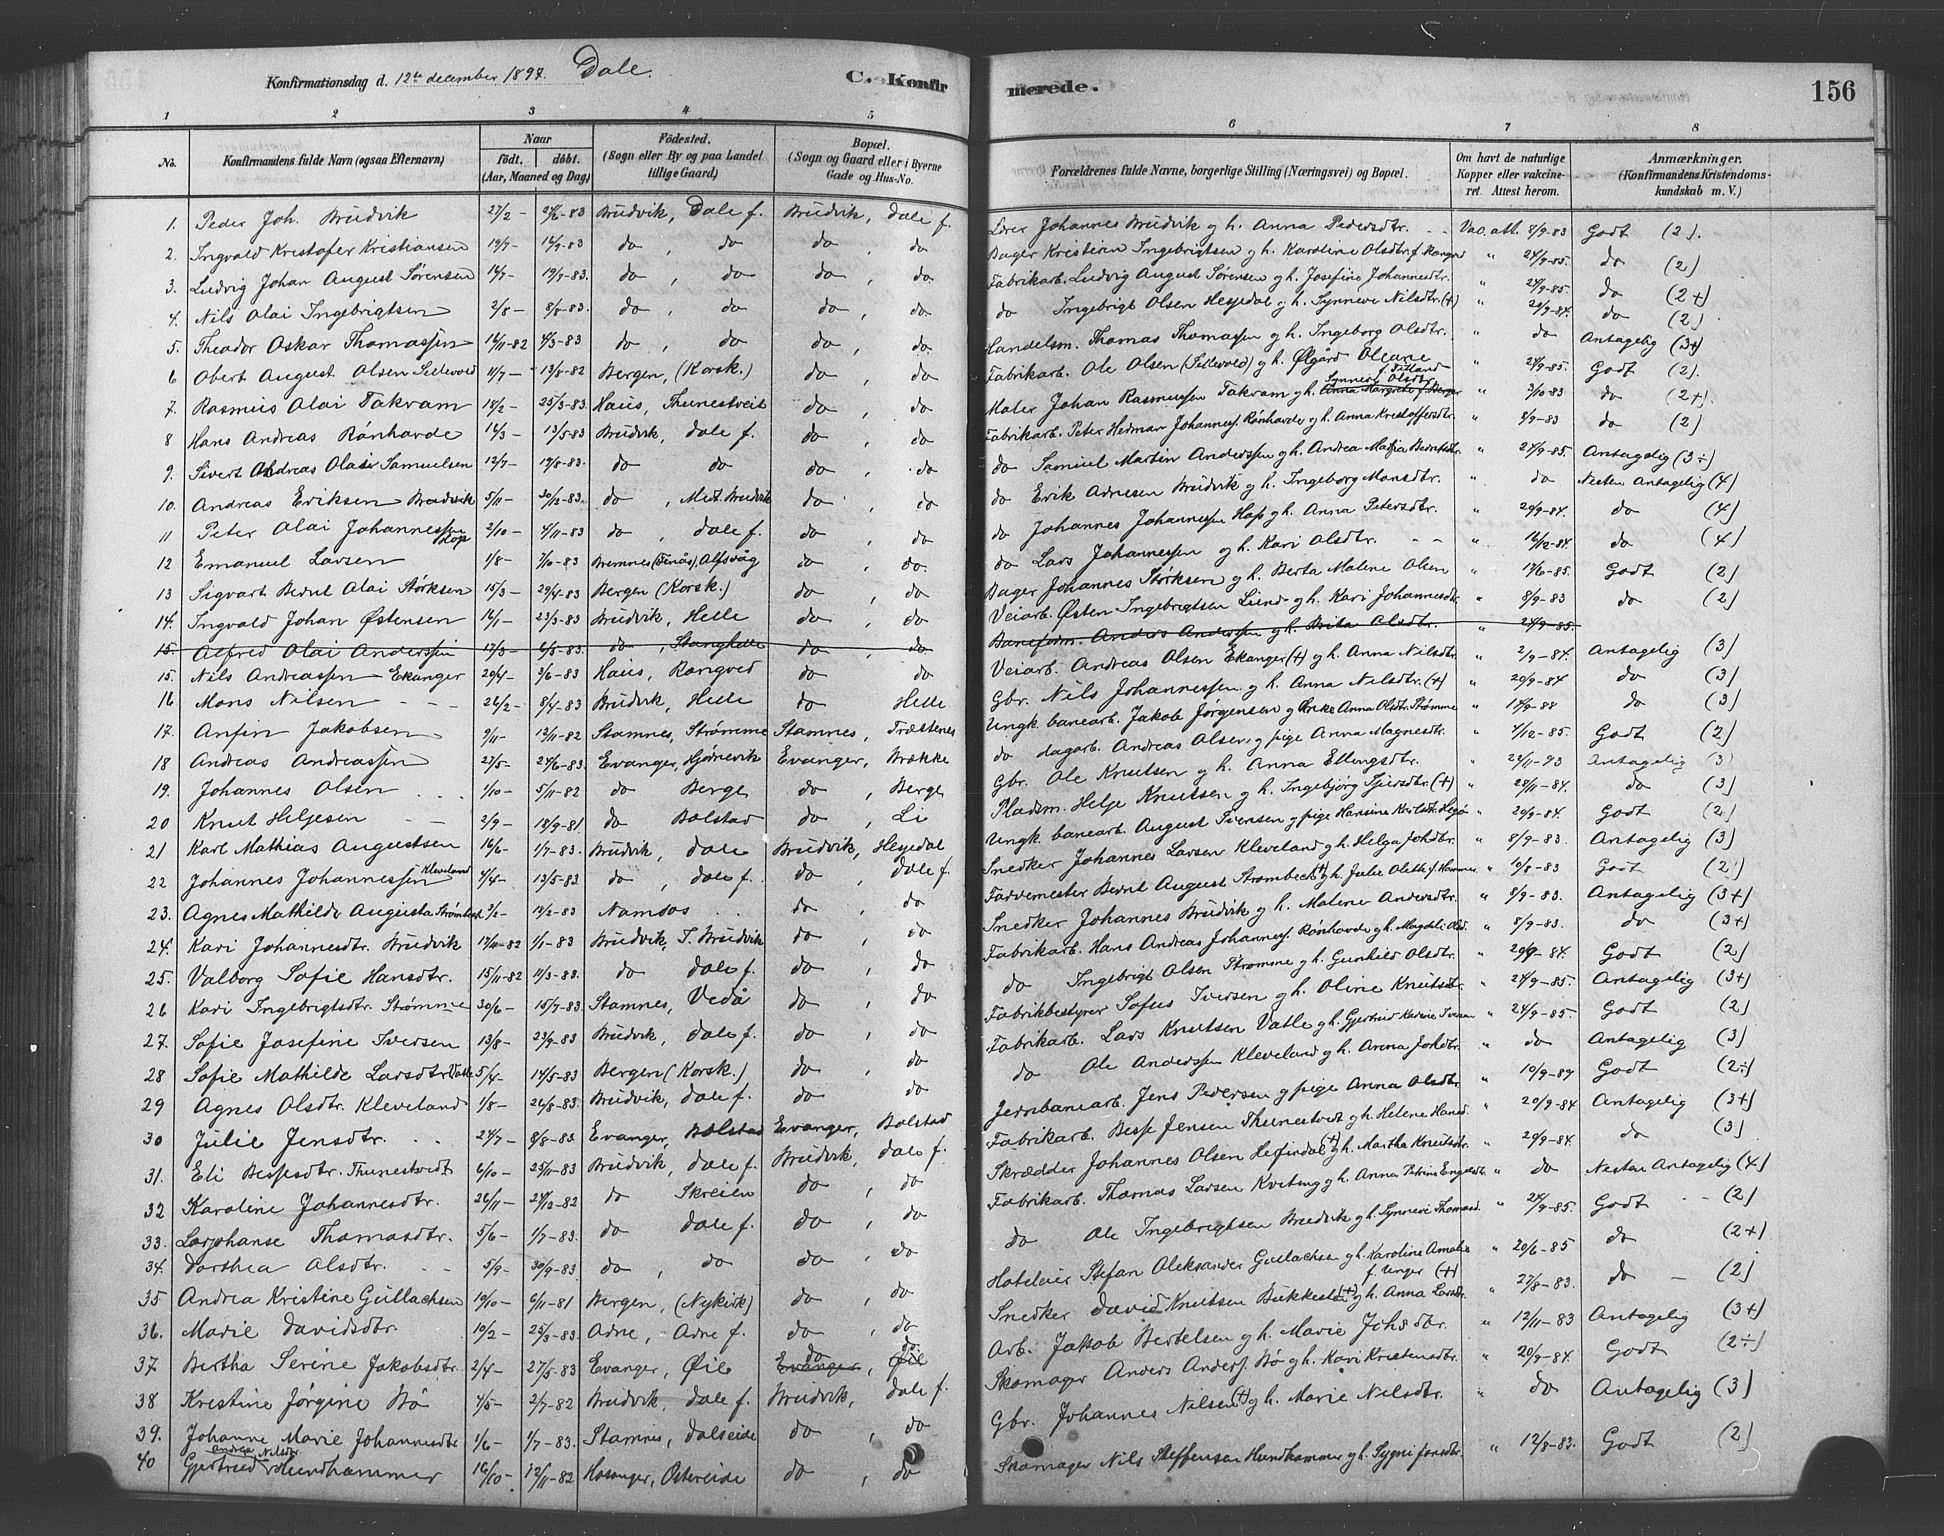 Konfirmationsdag d. 12te december 1897. Dale. C. Konfirmerede. 156
1 2 3 4 5 6 7 8
No. Konfirmandens fulde Navn (ogsaa Efternavn) Naar födt. döbt. (Aar, Maaned og Dag) Födested. (Sogn eller By og paa Landet tillige Gaard) Bopæl. (Sogn og Gaard eller i Byerne Gade og Hus-No. Forældrenes fulde Navne, borgerlige Stilling (Næringsvei) og Bopæl. Om havt de naturlige Kopper eller vakcineret. Attest herom. Anmærkninger. (Konfirmandens Kristendomskundskab m. V.)
1. Peder Joh. Brudvik 27/2- Brudvik, Dale f. Brudvik, Dale f. Lærer Johannes Brudvik g h. Anna Pedersdtr. Vac. att. 8/9-83 Godt (2).
2. Ingvald Kristofer Kristiansen 19/7- do, do do, do Bager Kristian Ingebrigtsen g h. Karoline Olsdtr. " 24/9-85. do (2)
3. Ludvig Johan August Sørensen 14/7- 19/9-83. do, do do, do Fabrikarb. Ludvig August Sørensen g h. Josefine Johannesdtr. " 24/9-85. do (2+)
4. Nils Olai Ingebrigtsen 2/8- 8/8-83. do, do do, do do Ingebrigt Olsen Hesjedal g h. Synneve Nilsdtr. (+) " do (2)
5. Theodor Oskar Thomassen 16/11-82 4/3-83 do, do do, do Handelsm. Thomas Thomassen g h. Ingeborg Olsdtr. " do Antagelig (3+)
6 Obert August Olsen Sellevold 11/7- 13/8-82 Bergen, (Korsk.) do, do Fabrikarb. Ole Olsen (Sellevold) g h. Ølgård Oleane " 24/9-85. Godt (2).
7. Rasmus Olai Takvam 18/2- 25/3-83 Haus, Thunestveit do, do Maler Johan Rasmussen Takvam g h. Synneve Olsdtr " 3/10-83 do (2+)
8 Hans Andreas Rønhovde 14/3- 13/5-83 Brudvik, Dale f. do, do Fabrikarb. Peter Hedmar Johanness. Rønhovde g h. Anna Kristoffersdtr. " 8/9-83 do (2)
9. Sivert Andreas Olai Samuelsen 12/7- 19/8-83. do do do, do do Samuel Martin Anderssen g h. Andrea Berntsdtr. " 24/9-85. Antagelig (3÷)
10. Andreas Eriksen Brudvik 5/11- 30/12-83. do, Mdt. Brudvik do, do do Erik Brudvik g h. Ingeborg Monsdtr. " do Nesten Antagelig (4)
11 Peter Olai Johannessen Hop 2/10- 4/11-83 do, Dale f. do, do do Johannes Johannessen Hop g h. Anna Petersdtr. " 20/9-84. do (4)
12 Emanuel Larsen 1/8- 7/10-83 Bremnes (Finås), Alfsvåg do, do. do Lars Johannessen g h. Kari Olsdtr. " 16/12-84. do (4)
13 Sigvart Bernt Olai Størksen 15/3- 29/4-83 Bergen (Korsk.) do, do Bager Johannes Størksen g h. Berta Malene Olsen " 17/6-85. Godt (2)
14. Ingvald Johan Østensen 16/1- 23/3-83 Brudvik, Helle do, do Veiarb. Østen Ingebrigtsen Lund g h. Kari Johannesdtr. " 8/9-83 do (2)
15. Alfred Olai Anderssen 17/3- 6/5-83. do, Stanghelle do do Baneform. Anders Anderssen g h. Brita Olsdtr. " 24/9-85.
15. Nils Andreassen Ekanger 29/4- 3/6-83 Haus, Rongved do do Veiarb. Andreas Olsen Ekanger (+) g h. Anna Nilsdtr. " 2/9-84. Antagelig (3)
16 Mons Nilsen 26/2- 8/4-83 Brudvik, Helle do Helle Gbr. Nils Johannessen g h. Anna Nilsdtr. (+) " 20/9-84 do (3)
17. Anfin Jakobsen 9/11- 12/11-82 Stamnes, Strømme Stamnes, Træstenes Ungk. banearb. Jakob Jørgensen g Anna Olsdtr. Strømme " 14/9-88 do (3)
18 Andreas Andreassen 27/5- 24/6-83. Evanger, Hjørnevik Evanger, Brække do dagarb. Andreas Olsen, g pige Anna Magnesdtr. " 4/12-85. Godt (2)
19. Johannes Olsen 1/10- 5/11-82 do Berge do, Berge Gbr. Ole Knutsen g h. Anna Ellingsdtr. " 24/11-93 Antagelig (3)
20 Knut Heljesen 2/9- 18/9-81 do Bolstad do, Li Pladsm. Helje Knutsen g h. Ingebjørg (+) " 28/11-84. do (3)
21 Karl Mathias Augustsen 16/6- 1/7-83. Brudvik, Dale Brudvik, Hesjedal Ungk. banearb. August Iversen g pige Hansine " 20/9-84. Godt (2)
22 Johannes Johannessen Kleveland 4/4- 13/5-83. do, Dale f. do, Dale f. Snedker Johannes Larsen Kleveland g h. Helga Johsdtr. " 8/9-83. Antagelig (3)
23. Agnes Mathilde Augusta Strømbeck 18/2-83 Namsos do, do Farvemester Bernt August Strømbeck (+) g h. Julie " 10/8-83 Godt (2)
24. Kari Johannesdtr. Brudvik 17/11-82 1/1-83 Brudvik, I. Brudvik do, do Snedker Johannes Brudvik g h. Malene Andersdtr. " 8/9-83. Antagelig (3+)
25. Valborg Sofie Hansdtr. 15/11-82 11/3-83. do Dale f. do, do Fabrikarb. Hans Andreas Johanness. Rønhovde g h. Magdeli Olsd. " 8/9-83. do (3+)
26 Kari Ingebrigtsdtr. Strømme 30/6- 15/7-83 Stamnes, Vedå do, do do Ingebrigt Olsen Strømme g h. Gunhild Olsdtr. " 20/9-84. Godt (2)
27. Sofie Josefine Iversen 13/8- 23/9-83 Brudvik, Dale f. do, do Fabrikbestyrer Sofus Iversen g h. Oline Knutsdtr. " 24/9-85. Antagelig (3+)
28 Sofie Mathilde Larsdtr. Vatle 5/4- 14/5-83 Bergen (Korsk.) do, do Fabrikarb. Lars Knutsen Vatle g h. Gjertrud Iversen " 24/9-85. Godt (2)
29 Agnes Olsdtr. Kleveland 1/8- 26/8-83. Brudvik, Dale f. do, do do Ole Anderssen Kleveland g h. Anna Johsdtr. " do Antagelig (3)
30 Julie Jensdtr. 24/7- 8/8-83. Evanger, Bolstad Evanger, Bolstad Jernbanearb. Jens Pedersen g pige Anna Olsdtr. " 10/9-89 Godt (2÷)
31. Eli Bessesdtr. Thunestvedt 6/10- 25/11-83 Brudvik, Dale f. Brudvik, Dale f. Fabrikarb. Besse Jensen Thunestvedt g h. Helene Hansd. " 20/9-84 Antagelig (3+)
32 Karoline Johannesdtr. 26/11- 24/12-82 do Skreien do, do Skrædder Johannes Olsen Hefindal (+) g h. Martha Knutsdtr. " 20/9-84. do (3)
33. Larjohanse Thomasdtr. 5/6- 1/7-83. do Dale f. do, do Fabrikarb. Thomas Larsen Kviting g h. Anna Petrine " do Nesten Antagelig (4)
34. Dorthea Olsdtr. 5/9- 30/9-83. do, do do, do do Ole Ingebrigtsen Brudvik g h. Synneve Thomasd. " 24/9-85. Godt (2)
35 Andrea Kristine Gullachsen 10/10- 6/11-81 Bergen, (Nykirk) do, do Hoteleier Stefan Oleksander Gullachsen g h. Karoline Amalie f. Unger (+) " 20/6-85 do (2+)
36. Marie Davidsdtr. 10/2- 25/3-83. Adne, Adne f. do, do Snedker David Knutsen (+) g h. Anna Larsdtr. " 27/8-83. do (2)
37 Bertha Serine Jakobsdtr. 2/4- 27/5-83 Evanger, Øie do Evanger, do Øie Arb. Jakob Bertelsen g h. Marie Johsdtr. " 12/11-83 Antagelig (3+)
38 Kristine Jørgine Bø 4/5- 2/7-82 Brudvik, Dale f. Brudvik, Dale f. Skomager Anders Anders. Bø g h. Kari Kristensdtr. " 20/9-84. Godt (2÷)
39. Johanne Marie Johannesdtr. 1/6- 1/7-83. Stamnes, Dalseide do, do Gbr. Johannes Nilsen (+) g h. Marie Nilsdtr. " do Antagelig (3)
40 Gjertrud Andrea Nilsdtr. Hundhammer 16/10- 12/11-82 Hosanger, Østereide do, do Skomager Nils Steffensen Hundhammer g h. Sygni Jonsdtr. " 12/8-83. Godt (2)